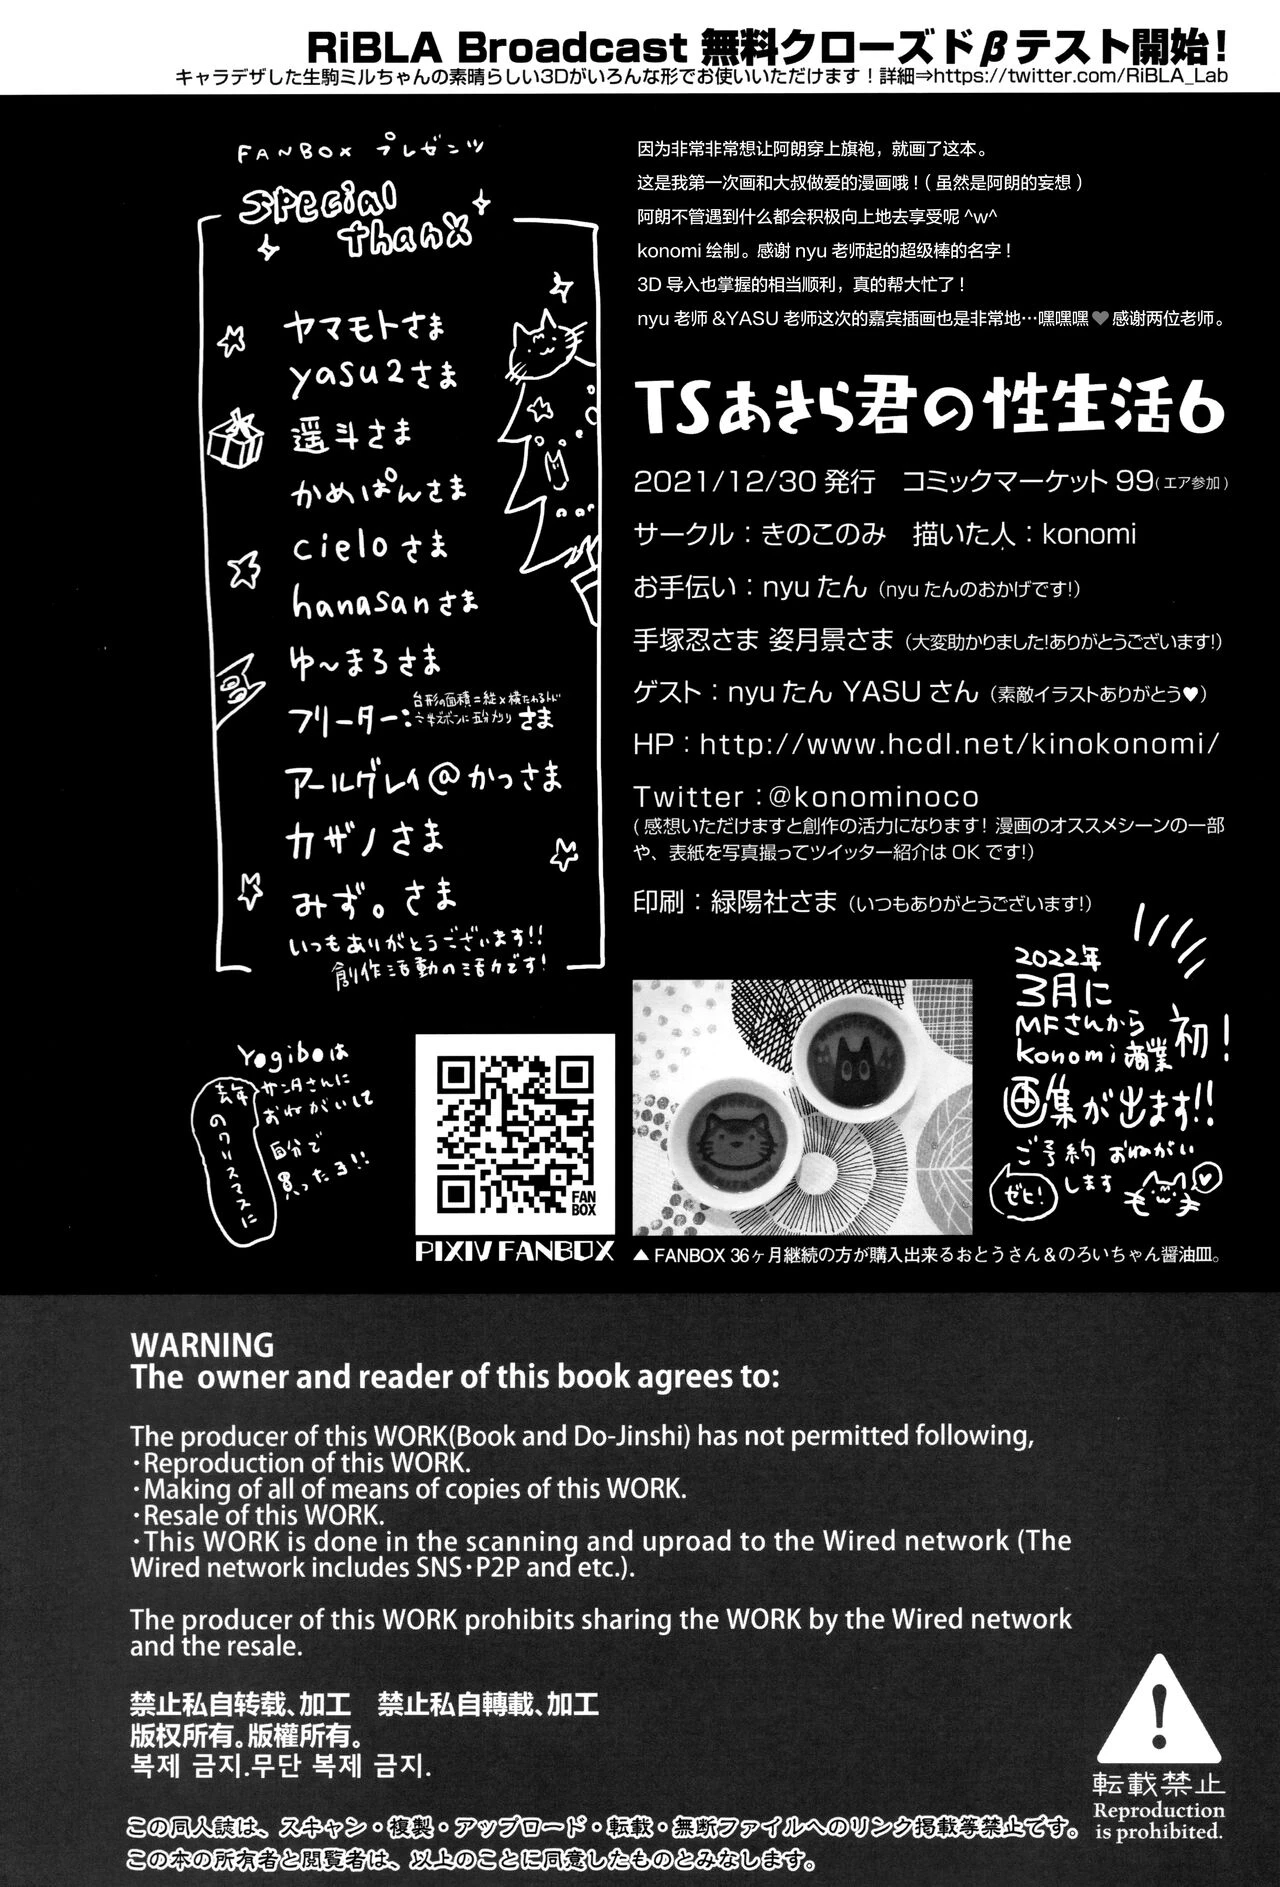 RiBLA Broadcast 無料クローズドβテスト開始！
キャラデザした生駒ミルちゃんの素晴らしい3Dがいろんな形でお使いいただけます！詳細⇒https://twitter.com/RiBLA_Lab
FANBOX プレゼンツ
Special
thanX
ヤマモトさま
yasu2さま
遥斗さま
かめぱんさま
cieloさま
hanasanさま
ゆ～まろさま
フリーター：さま
アールグレイ@かっさま
カザノさま
みず。さま
いつもありがとうございます!!
創作活動の活力です!
因为非常非常想让阿朗穿上旗袍，就画了这本。
这是我第一次画和大叔做爱的漫画哦！（虽然是阿朗的妄想）
阿朗不管遇到什么都会积极向上地去享受呢 ^w^
konomi 绘制。感谢 nyu 老师起的超级棒的名字！
3D 导入也掌握的相当顺利，真的帮大忙了！
nyu 老师 &YASU 老师这次的嘉宾插画也是非常地…嘿嘿嘿♥感谢两位老师。
TSあきら君の性生活6
2021/12/30 発行　コミックマーケット 99（エア参加）
サークル：きのこのみ　描いた人：konomi
お手伝い：nyu たん（nyu たんのおかげです!）
手塚忍さま 姿月景さま（大変助かりました!ありがとうございます!）
ゲスト：nyu たん YASU さん（素敵イラストありがとう♥）
HP：http://www.hcdl.net/kinokonomi/
Twitter：@konominoco
（感想いただけますと創作の活力になります！漫画のオススメシーンの一部
や、表紙を写真撮ってツイッター紹介は OK です!）
印刷：緑陽社さま（いつもありがとうございます!）
2022年
3月に
MFさんから
konomi商業初!
画集が出ます!!
ご予約おねがい
します
ゼヒ!
Yogiboは
去年のクリスマスに
サンタさんに
おねがいして
自分で
買ったよ!!
FAN
BOX
PIXIV FANBOX
▲ FANBOX 36ヶ月継続の方が購入出来るおとうさん＆のろいちゃん醤油皿。
WARNING
The owner and reader of this book agrees to:
The producer of this WORK(Book and Do-Jinshi) has not permitted following,
・Reproduction of this WORK.
・Making of all of means of copies of this WORK.
・Resale of this WORK.
・This WORK is done in the scanning and uproad to the Wired network (The
Wired network includes SNS・P2P and etc.).
The producer of this WORK prohibits sharing the WORK by the Wired network
and the resale.
禁止私自转载、加工　禁止私自轉載、加工
版权所有。版權所有。
복제 금지.무단 복제 금지.
この同人誌は、スキャン・複製・アップロード・転載・無断ファイルへのリンク掲載等禁止です。
この本の所有者と閲覧者は、以上のことに同意したものとみなします。
転載禁止
Reproduction
is prohibited.